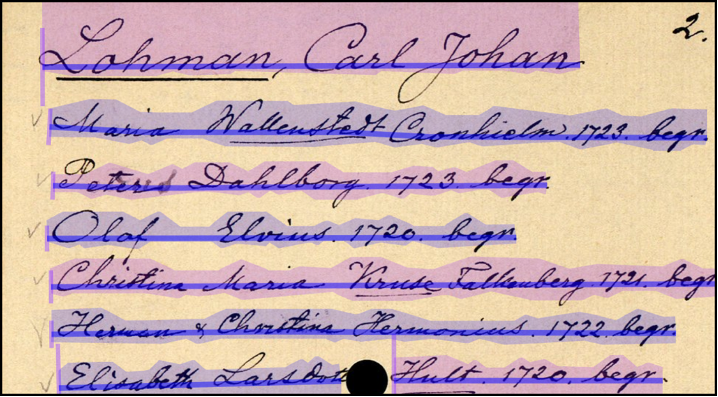 2.
Lohman, Carl Johan
Maria Wallenstedt Cronhielm. 1723. begr.
Peterus Dahlborg. 1723. begr.
Olof Elvius. 1720. begr.
Christina Maria Kruse Falkenberg. 1721. begr
Herman & Christina Hermonius. 1722. begr.
Elisabeth Larsdott Hult. 1720. begr.